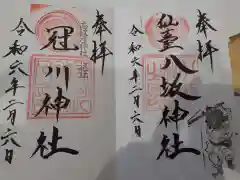 奉拝
冠川神社
令和六年二月六日
奉拝
仙臺
八坂神社
令和六年二月六日